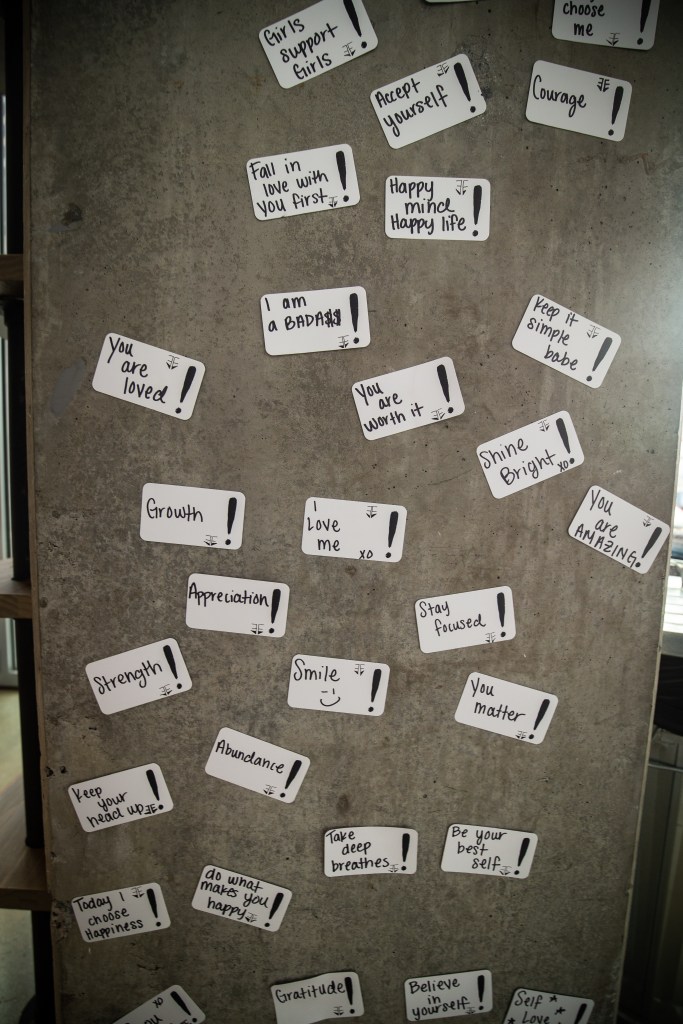 Girls
support
Girls
choose
me
Accept
yourself
!
Courage
!
Fall in
love with
you first
!
Happy
mind
Happy life
!
I am
a BADA$$
!
Keep it
simple
babe
!
You
are
loved
!
You
are
worth it
!
Shine
Bright
xo
!
Growth
!
I
Love
me
xo
!
You
are
AMAZING
!
Appreciation
!
Stay
focused
!
Strength
!
Smile
!
You
matter
!
Abundance
!
Keep
your
head up
!
Take
deep
breathes
!
Be your
best
self
!
do what
makes you
happy
!
Today I
choose
Happiness
!
Gratitude
!
Believe
in
yourself
!
Self
Love
xo